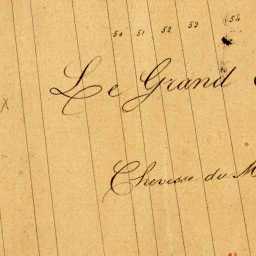 50 51 52 53 54
Le Grand
Chevesse du M